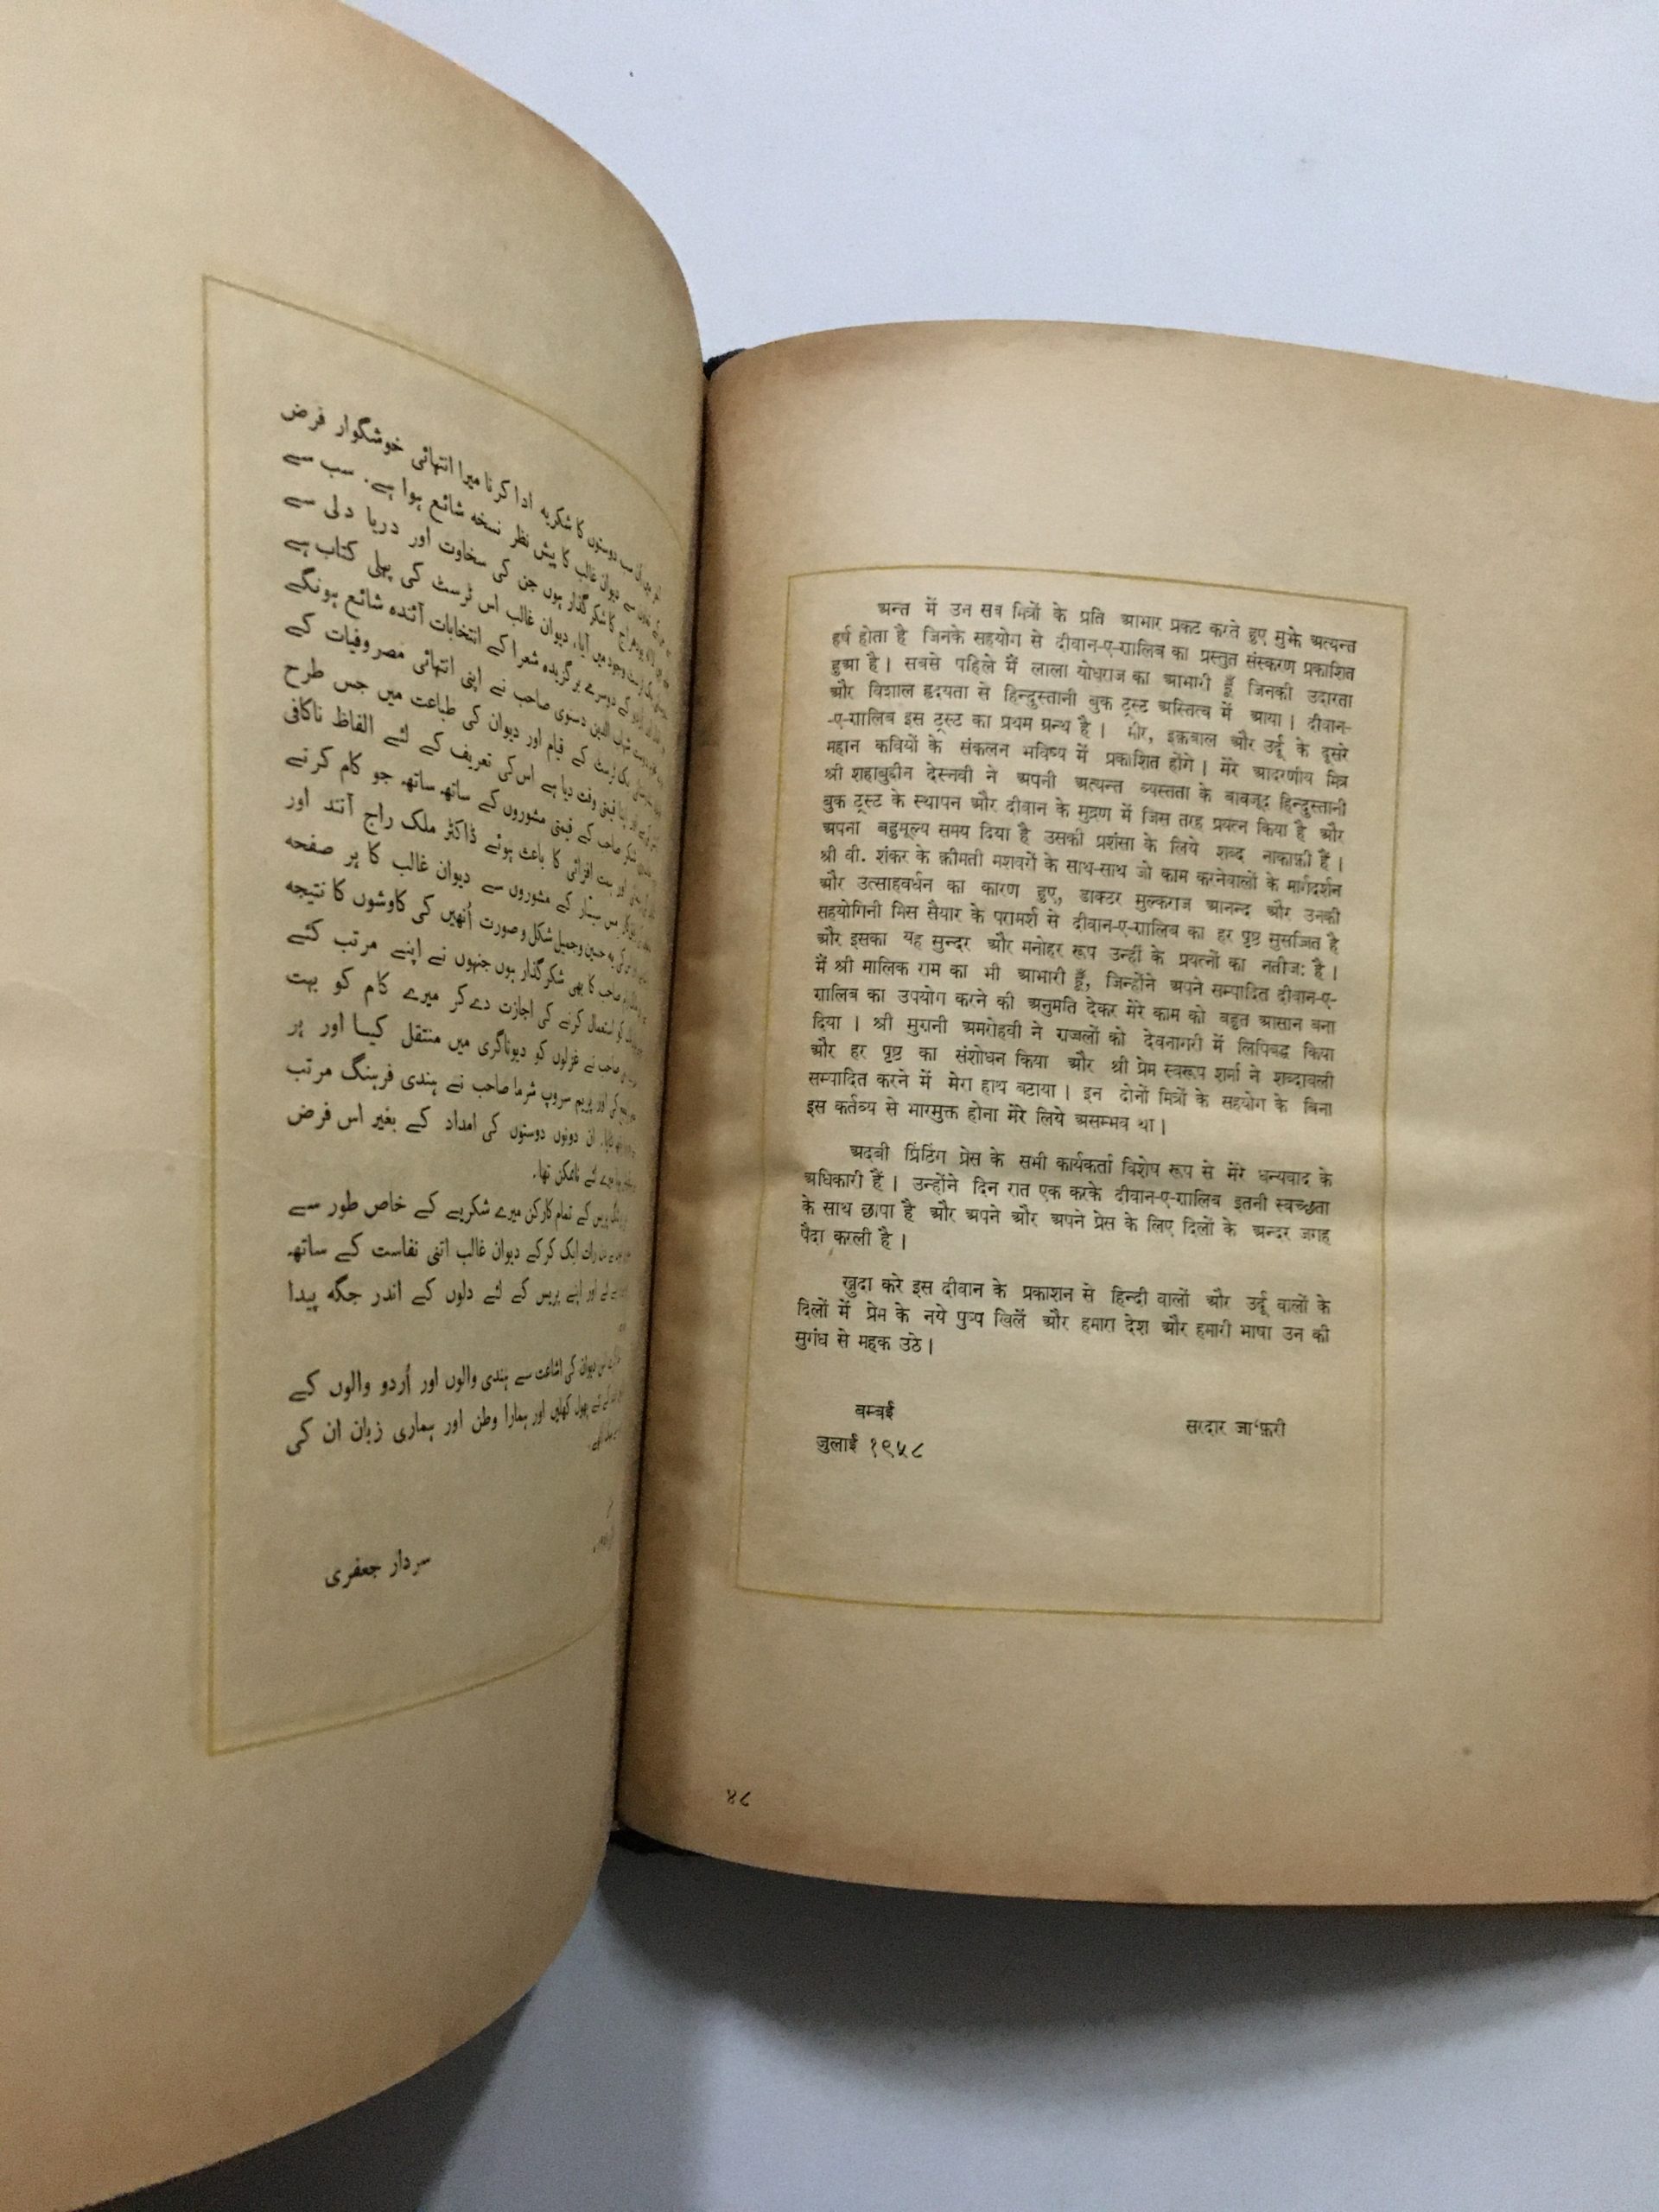 کا شکریہ ادا کرنا میرا انتہائی خوشگوار فرض
دیوان غالب کا پیش نظر نسخہ شائع ہوا ہے۔ سب سے
کا شکر گذار ہوں جن کی سخاوت اور دریا دلی سے
وجود میں آیا۔ دیوان غالب اس ٹرسٹ کی پہلی کتاب ہے
کے دوسرے برگزیدہ شعرا کے انتخابات آئندہ شائع ہونگے
شہاب الدین دسنوی صاحب نے اپنی انتہائی مصروفیات کے
ٹرسٹ کے قیام اور دیوان کی طباعت میں جس طرح
اپنا قیمتی وقت دیا ہے اس کی تعریف کے لئے الفاظ ناکافی
صاحب کے قیمتی مشوروں کے ساتھ ساتھ جو کام کرنے
اور ہمت افزائی کا باعث ہوئے ڈاکٹر ملک راج آنند اور
کے مشوروں سے دیوان غالب کا ہر صفحہ
کی یہ حسین و جمیل شکل و صورت اُنھیں کی کاوشوں کا نتیجہ
صاحب کا بھی شکر گذار ہوں جنہوں نے اپنے مرتب کئے
کو استعمال کرنے کی اجازت دے کر میرے کام کو بہت
صاحب نے غزلوں کو دیوناگری میں منتقل کیا اور ہر
کی اور پریم سروپ شرما صاحب نے ہندی فرہنگ مرتب
ان دونوں دوستوں کی امداد کے بغیر اس فرض
میرے لئے ناممکن تھا۔
پریس کے تمام کارکن میرے شکریے کے خاص طور سے
رات ایک کرکے دیوان غالب اتنی نفاست کے ساتھ
اور اپنے پریس کے لئے دلوں کے اندر جگہ پیدا
دیوان کی اشاعت سے ہندی والوں اور اُردو والوں کے
پھول کھلیں اور ہمارا وطن اور ہماری زبان ان کی
سردار جعفری
अन्त में उन सब मित्रों के प्रति आभार प्रकट करते हुए मुझे अत्यन्त
हर्ष होता है जिनके सहयोग से दीवान-ए-ग़ालिब का प्रस्तुत संस्करण प्रकाशित
हुआ है। सबसे पहिले मैं लाला योधराज का आभारी हूँ जिनकी उदारता
और विशाल हृदयता से हिन्दुस्तानी बुक ट्रस्ट अस्तित्व में आया। दीवान-
-ए-ग़ालिब इस ट्रस्ट का प्रथम ग्रन्थ है। मीर, इक़बाल और उर्दू के दूसरे
महान कवियों के संकलन भविष्य में प्रकाशित होंगे। मेरे आदरणीय मित्र
श्री शहाबुद्दीन देस्नवी ने अपनी अत्यन्त व्यस्तता के बावजूद हिन्दुस्तानी
बुक ट्रस्ट के स्थापन और दीवान के मुद्रण में जिस तरह प्रयत्न किया है और
अपना बहुमूल्य समय दिया है उसकी प्रशंसा के लिये शब्द नाकाफ़ी हैं।
श्री वी. शंकर के क़ीमती मशवरों के साथ-साथ जो काम करनेवालों के मार्गदर्शन
और उत्साहवर्धन का कारण हुए, डाक्टर मुल्कराज आनन्द और उनकी
सहयोगिनी मिस सैयार के परामर्श से दीवान-ए-ग़ालिब का हर पृष्ठ सुसज्जित है
और इसका यह सुन्दर और मनोहर रूप उन्हीं के प्रयत्नों का नतीजः है।
मैं श्री मालिक राम का भी आभारी हूँ, जिन्होंने अपने सम्पादित दीवान-ए-
ग़ालिब का उपयोग करने की अनुमति देकर मेरे काम को बहुत आसान बना
दिया। श्री मुग़नी अमरोहवी ने ग़ज़लों को देवनागरी में लिपिबद्ध किया
और हर पृष्ठ का संशोधन किया और श्री प्रेम स्वरूप शर्मा ने शब्दावली
सम्पादित करने में मेरा हाथ बटाया। इन दोनों मित्रों के सहयोग के बिना
इस कर्तव्य से भारमुक्त होना मेरे लिये असम्भव था।
अदबी प्रिंटिंग प्रेस के सभी कार्यकर्ता विशेष रूप से मेरे धन्यवाद के
अधिकारी हैं। उन्होंने दिन रात एक करके दीवान-ए-ग़ालिब इतनी स्वच्छता
के साथ छापा है और अपने और अपने प्रेस के लिए दिलों के अन्दर जगह
पैदा करली है।
ख़ुदा करे इस दीवान के प्रकाशन से हिन्दी वालों और उर्दू वालों के
दिलों में प्रेम के नये पुष्प खिलें और हमारा देश और हमारी भाषा उन की
सुगंध से महक उठे।
बम्बई
सरदार जा'फ़री
जुलाई १९५८
४८